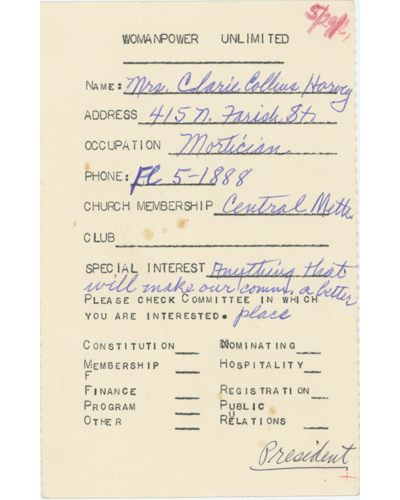 WOMANPOWER UNLIMITED
NAME: Mrs. Clarie Collins Harvey
ADDRESS 415 N. Farish St.
OCCUPATION Mortician
PHONE: FL 5-1888
CHURCH MEMBERSHIP Central Meth.
CLUB
SPECIAL INTEREST Anything that
will make our comm. a better
PLEASE CHECK COMMITTEE IN WHICH
YOU ARE INTERESTED. place
CONSTITUTION NOMINATING
MEMBERSHIP HOSPITALITY
F
FINANCE REGISTRATION
PROGRAM PUBLIC
OTHER RELATIONS
President